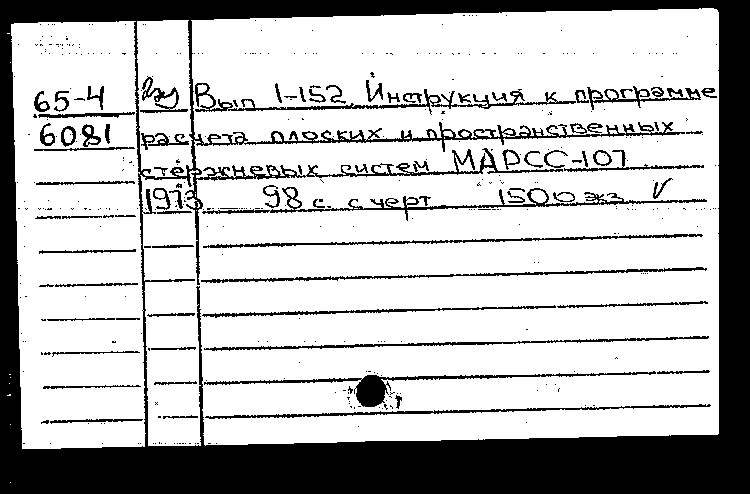 65-4 2эк Вып 1-152. Инструкция к программе
6081 расчета плоских и пространственных
стержневых систем МАРСС-107
1973 98 с. с черт 1500 экз V